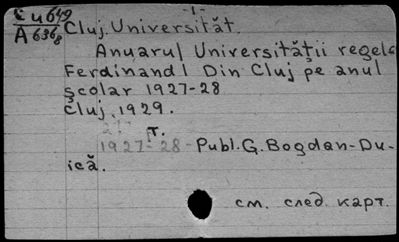 -1-
Cluj. Universităt.
A 636
Anuarul Universităţii regele
Ferdinand I Din Cluj pe anul
şcolar 1927-28
Cluj, 1929.
т.
1927-28 - Publ. G. Bogdan-Du-
ică.
см. след. карт.